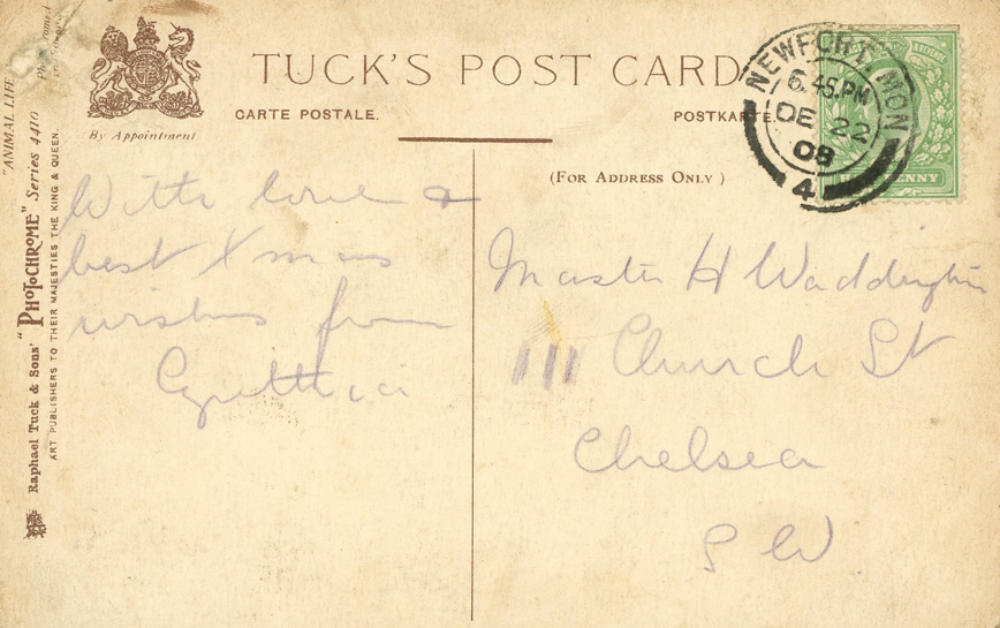 TUCK'S POST CARD
CARTE POSTALE.
POSTKARTE.
By Appointment
(FOR ADDRESS ONLY)
NEWPORT MON
6.45.PM
DE 22
08
4
HALFPENNY
With love &
best Xmas
wishes from
Cynthia
Master H Waddington
111 Church St
Chelsea
S W
"ANIMAL LIFE
Raphael Tuck & Sons' "PHOTOCHROME" Series 4410
ART PUBLISHERS TO THEIR MAJESTIES THE KING & QUEEN.